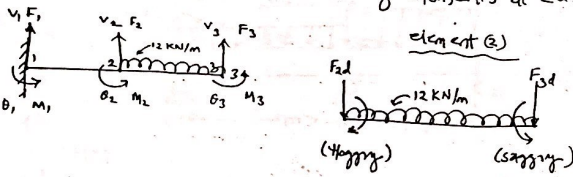 V₁ F₁
V₂ F₂
V₃ F₃
12 KN/m
1
2
3
θ₁ M₁
θ₂ M₂
θ₃ M₃
element (2)
F₂d
F₃d
12 KN/m
(Hogging)
(sagging)